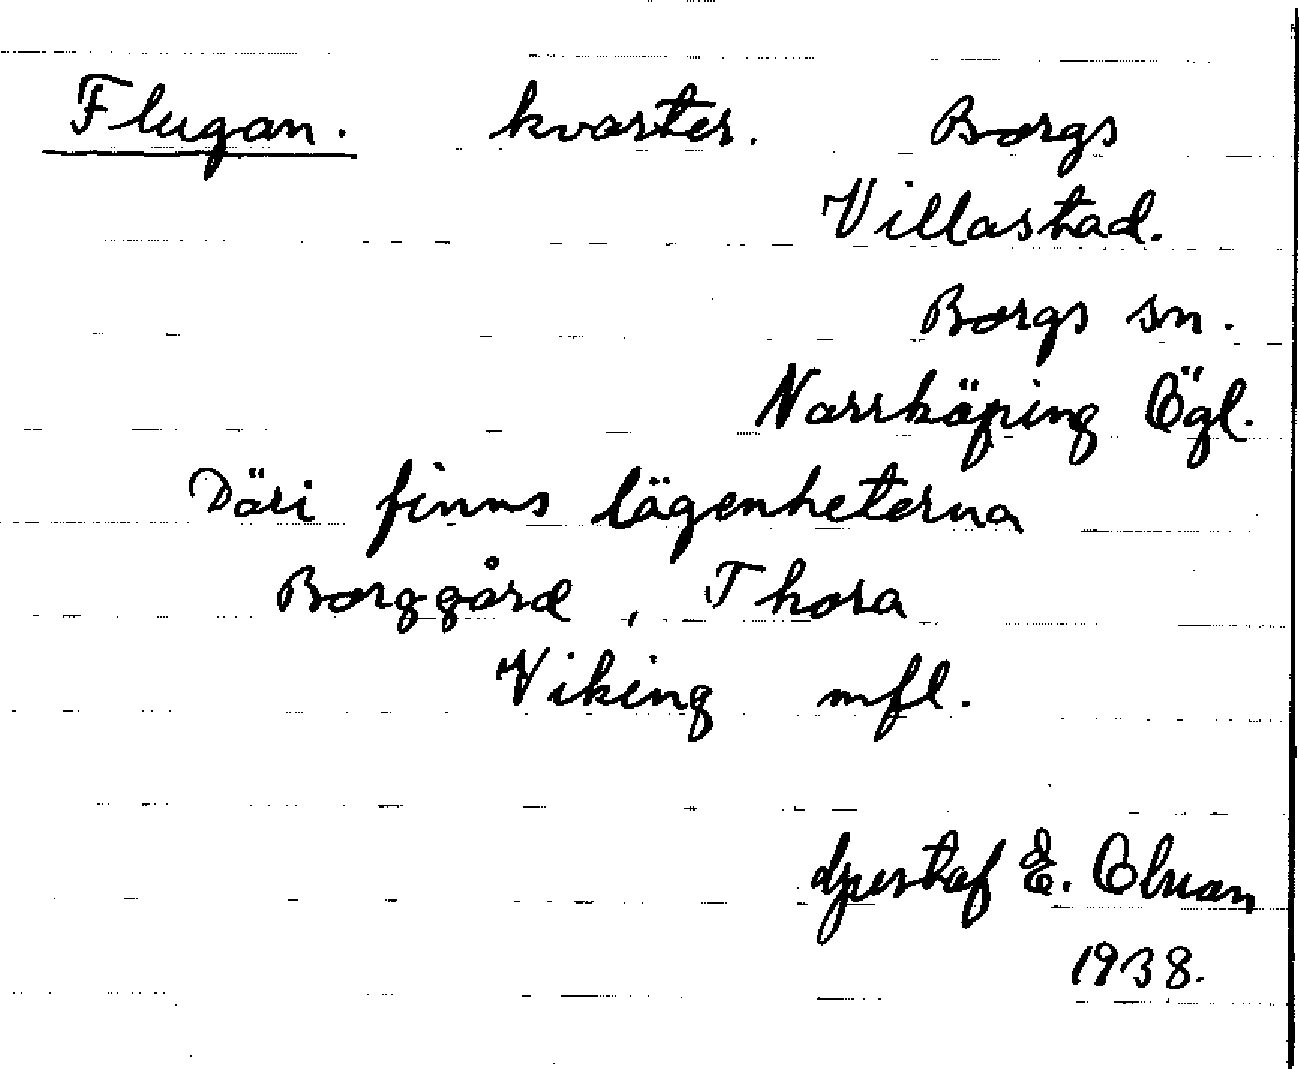 Flugan. kvarter. Borgs
Villastad.
Borgs sn.
Norrköping Ögl.
Däri finns lägenheterna
Borggård, Thora
Viking mfl.
Gustaf E.
1938.